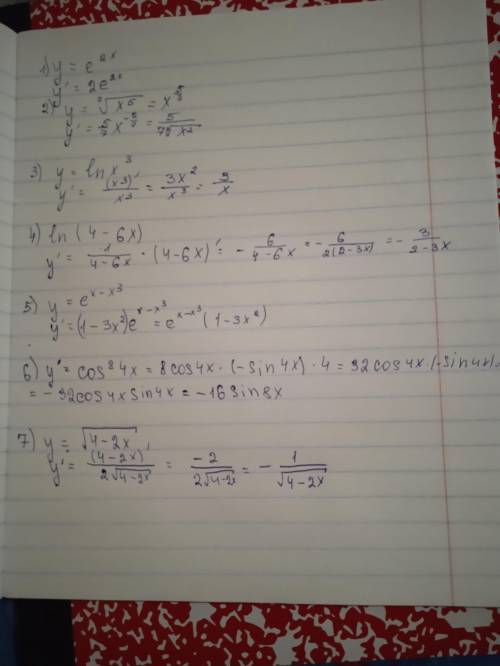 1) y = e^{2x}
y' = 2e^{2x}
2) y = \sqrt[7]{x^5} = x^{\frac{5}{7}}
y' = \frac{5}{7} x^{-\frac{2}{7}} = \frac{5}{7\sqrt[7]{x^2}}
3) y = ln x^3
y' = \frac{(x^3)'}{x^3} = \frac{3x^2}{x^3} = \frac{3}{x}
4) ln (4-6x)
y' = \frac{1}{4-6x} · (4-6x)' = - \frac{6}{4-6x} = - \frac{6}{2(2-3x)} = - \frac{3}{2-3x}
5) y = e^{x-x^3}
y' = (1-3x^2)e^{x-x^3} = e^{x-x^3} (1-3x^2)
6) y' = cos^8 4x = 8cos4x · (-sin4x) · 4 = 32cos4x·(-sin4x) =
= - 32cos4x sin4x = -16sin8x
7) y = \sqrt{4-2x}
y' = \frac{(4-2x)'}{2\sqrt{4-2x}} = \frac{-2}{2\sqrt{4-2x}} = - \frac{1}{\sqrt{4-2x}}